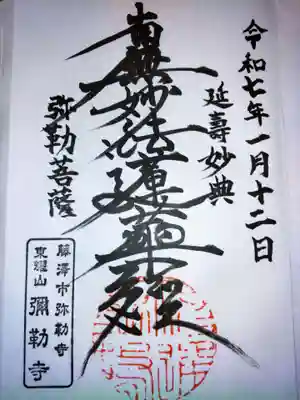 令和七年一月十二日
延壽妙典
南無妙法蓮華經
弥勒菩薩
藤澤市弥勒寺
東耀山 彌勒寺